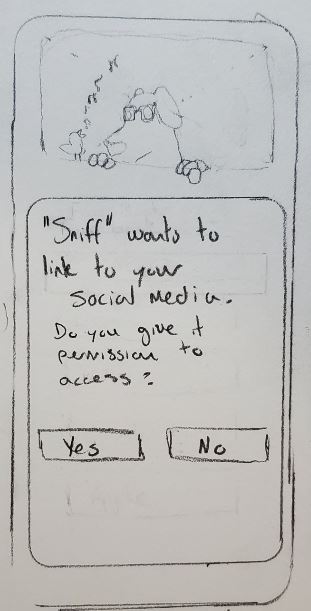 "Sniff" wants to
link to your
Social Media.
Do you give it
permission to
access?
Yes No